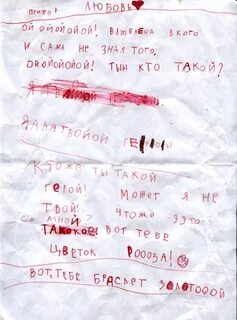 ЛЮБОВЬ
ОЙОЙОЙОЙ! ВЛЮБЛЕНА В КОГО
И САМА НЕ ЗНАЯ ТОГО,
ОЙОЙОЙОЙ! ТЫЫ КТО ТАКОЙ?
ЯЯЯЯТВОЙОЙ ГЕРОЙ
КТОЖЕ ТЫ ТАКОЙ
ГЕРОЙ! МОЖЕТ Я НЕ
ТВОЙ! ЧТОЖЕ ЭЭТО
СО МНОЙ?
ТАКОЕ ВОТ ТЕБЕ
ЦВЕТОК РОООЗА!
ВОТ,ТЕБЕ БРАСЛЕТ ЗОЛОТООЙ